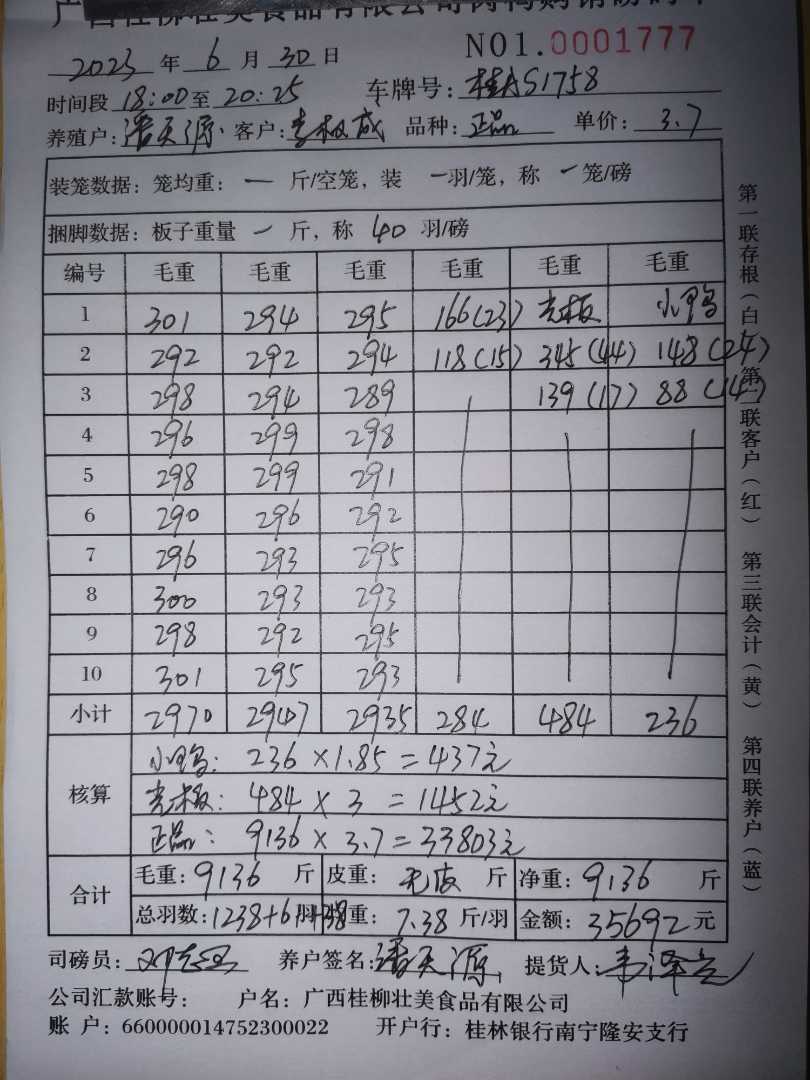 广西桂柳壮美食品有限公司肉鸭购销磅码单
2023 年 6 月 30 日 NO1.0001777
时间段 18:00 至 20:25 车牌号: 桂AS1758
养殖户: 潘天源 客户: 李极成 品种: 正品 单价: 3.7
装笼数据: 笼均重: 一 斤/空笼, 装 一 羽/笼, 称 一 笼/磅
捆脚数据: 板子重量 一 斤, 称 40 羽/磅
编号 毛重 毛重 毛重 毛重 毛重 毛重
1 301 294 295 166(23) 光板 小鸭
2 292 292 294 118(15) 345(44) 148(24)
3 298 294 289 139(17) 88(14)
4 296 299 298
5 298 299 291
6 290 296 292
7 296 293 295
8 300 293 293
9 298 292 295
10 301 295 293
小计 2970 2947 2935 284 484 236
核算
小鸭: 236 × 1.85 = 437元
光板: 484 × 3 = 1452元
正品: 9136 × 3.7 = 33803元
合计
毛重: 9136 斤 皮重: 无皮 斤 净重: 9136 斤
总羽数: 1238+61+38 羽 重: 7.38 斤/羽 金额: 35692 元
司磅员: 养户签名: 潘天源 提货人: 韦泽
公司汇款账号: 户名: 广西桂柳壮美食品有限公司
账 户: 660000014752300022 开户行: 桂林银行南宁隆安支行
第一联存根(白) 第二联客户(红) 第三联会计(黄) 第四联养户(蓝)